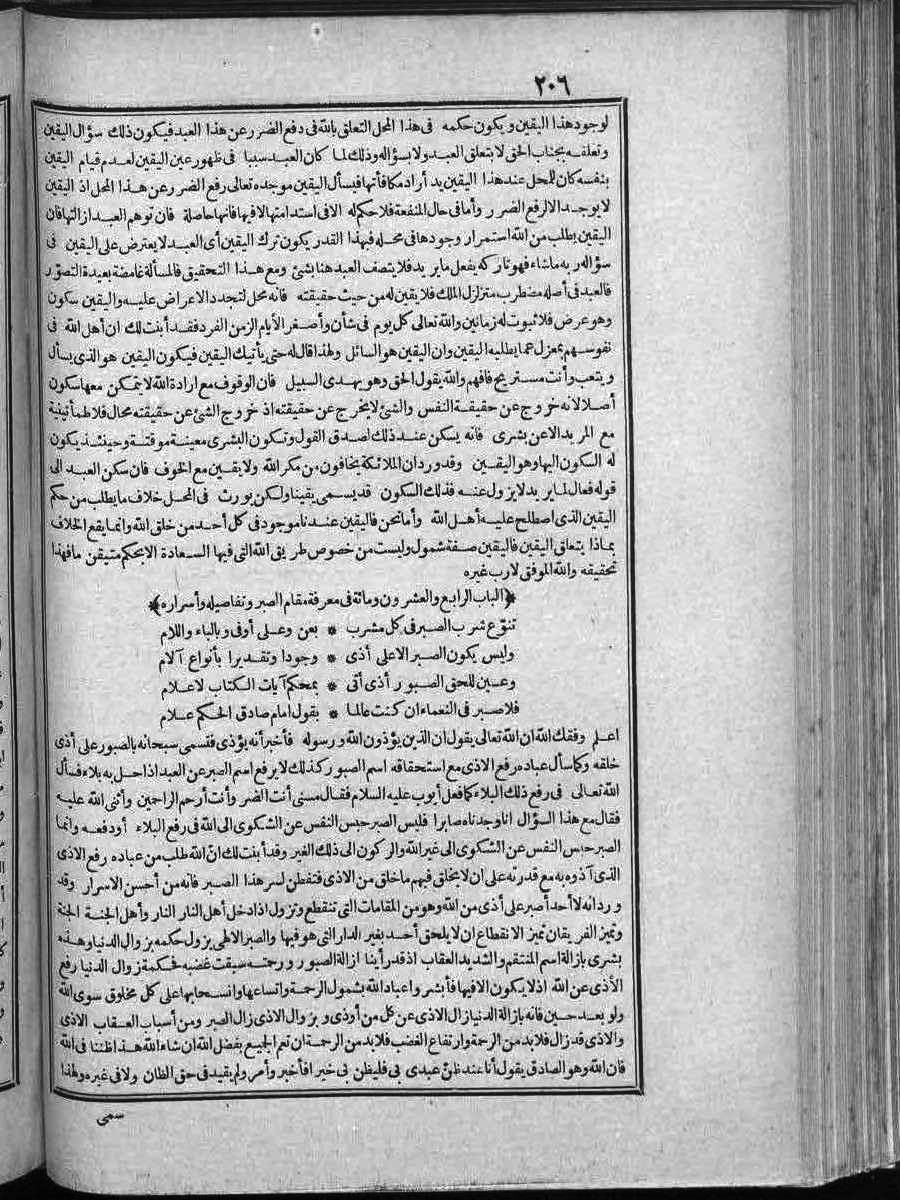 ٢٠٦
لوجود هذا اليقين ويكون حكمه فى هذا المحل التعلق بالله فى دفع الضرر عن هذا العبد فيكون ذلك سؤال اليقين
وتعلقه بجناب الحق لا يتعلق العبد ولا بسؤاله وذلك لما كان العبد سببا فى ظهور عين اليقين لعدم قيام اليقين
بنفسه كان للمحل عند هذا اليقين يد أراد مكافأتها فيسأل اليقين موجده تعالى رفع الضرر عن هذا المحل اذ اليقين
لا يوجد الا لرفع الضرر وأما فى حال المنفعة فلا حكم له الا فى استدامتها لا فيها فانها حاصلة فان توهم العبد ازالتها فان
اليقين يطلب من الله استمرار وجودها فى محله فبهذا القدر يكون ترك اليقين أى العبد لا يعترض على اليقين فى
سؤاله ربه ما شاء فهو تاركه يفعل ما يريد فلا يتصف العبد هنا بشئ ومع هذا التحقيق فالمسألة غامضة بعيدة التصور
فالعبد فى أصله مضطرب متزلزل الملك فلا يقين له من حيث حقيقته فانه محل لتجدد الاعراض عليه واليقين سكون
وهو عرض فلا ثبوت له زمانين والله تعالى كل يوم فى شأن وأصغر الأيام الزمن الفرد فقد أبنت لك ان أهل الله فى
نفوسهم بمعزل عما يطلبه اليقين وان اليقين هو السائل ولهذا قال له حتى يأتيك اليقين فيكون اليقين هو الذى يسأل
ويتعب وأنت مستريح فافهم والله يقول الحق وهو يهدى السبيل فان الوقوف مع ارادة الله لا يتمكن معها سكون
أصلا لانه خروج عن حقيقة النفس والشئ لا يخرج عن حقيقته اذ خروج الشئ عن حقيقته محال فلا طمأنينة
مع المريد الا عن بشرى فانه يسكن عند ذلك لصدق القول وتكون البشرى معينة موقتة وحينئذ يكون
له السكون اليها وهو اليقين وقد ورد ان الملائكة يخافون من مكر الله ولا يقين مع الخوف فان سكن العبد الى
قوله فعال لما يريد لا يزول عنه فذلك السكون قد يسمى يقينا ولكن يورث فى المحل خلاف ما يطلب من حكم
اليقين الذى اصطلح عليه أهل الله وأما نحن فاليقين عندنا موجود فى كل أحد من خلق الله وانما يقع الخلاف
بماذا يتعلق اليقين فاليقين صفة شمول وليست من خصوص طريق الله التى فيها السعادة الا بحكم متيقن ما فهذا
تحقيقه والله الموفق لا رب غيره
﴿الباب الرابع والعشرون ومائة فى معرفة مقام الصبر وتفاصيله وأسراره﴾
تنوّع شرب الصبر فى كل مشرب * بعن وعلى أوفى وبالباء واللام
وليس يكون الصبر الا على أذى * وجودا وتقديرا بأنواع آلام
وعين للحق الصبور أذى أتى * بمحكم آيات الكتاب لاعلام
فلا صبر فى النعماء ان كنت عالما * بقول امام صادق الحكم علام
اعلم وفقك الله ان الله تعالى يقول ان الذين يؤذون الله ورسوله فأخبر أنه يؤذى فتسمى سبحانه بالصبور على أذى
خلقه وكما سأل عباده رفع الاذى مع استحقاقه اسم الصبور كذلك لا يرفع اسم الصبر عن العبد اذا حل به بلاء فسأل
الله تعالى فى رفع ذلك البلاء كما فعل أيوب عليه السلام فقال مسنى أنت الضر وأنت أرحم الراحمين وأثنى الله عليه
فقال مع هذا السؤال انا وجدناه صابرا فليس الصبر حبس النفس عن الشكوى الى الله فى رفع البلاء أو دفعه وانما
الصبر حبس النفس عن الشكوى الى غير الله والركون الى ذلك الغير وقد أبنت لك انّ الله طلب من عباده رفع الاذى
الذى آذوه به مع قدرته على ان لا يخلق فيهم ما خلق من الاذى فتفطن لسر هذا الصبر فانه من أحسن الاسرار وقد
ورد انه لا أحد أصبر على أذى من الله وهو من المقامات التى تنقطع وتزول اذا دخل أهل النار النار وأهل الجنة الجنة
وتميز الفريقان تميز الانقطاع ان لا يلحق أحد بغير الدار التى هو فيها والصبر الالهى يزول حكمه بزوال الدنيا وهذه
بشرى بازالة اسم المنتقم والشديد العقاب اذ قد رأينا ازالة الصبور ورحمته سبقت غضبه فحكمة زوال الدنيا رفع
الأذى عن الله اذ لا يكون الا فيها فأبشروا عباد الله بشمول الرحمة واتساعها وانسحابها على كل مخلوق سوى الله
ولو بعد حين فانه بازالة الدنيا زال الاذى عن كل من أوذى وبزوال الاذى زال الصبر ومن أسباب العقاب الاذى
والاذى قد زال فلا بد من الرحمة وارتفاع الغضب فلا بد من الرحمة ان تعم الجميع بفضل الله ان شاء الله هذا ظننا فى الله
فان الله وهو الصادق يقول أنا عند ظنّ عبدى بى فليظن بى خيرا فأخبر وأمر ولم يقيد فى حق الظان ولا فى غيره ولهذا
سمى